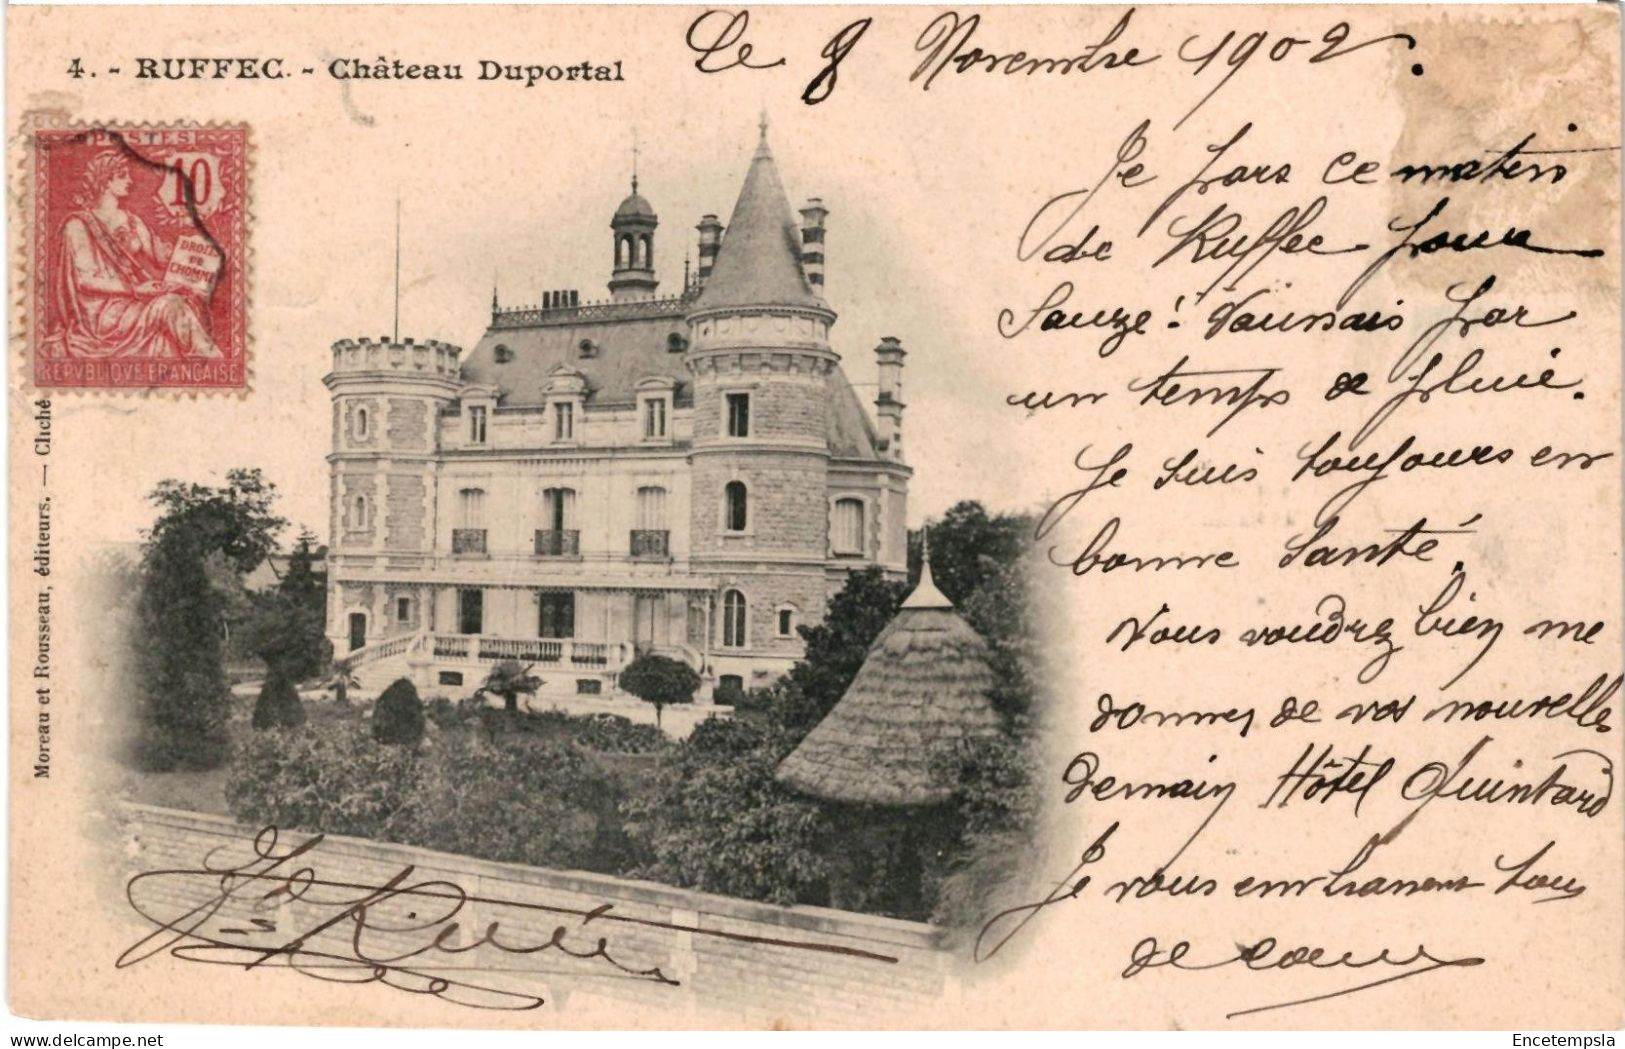 4. - RUFFEC. - Château Duportal
Le 8 Novembre 1902.
POSTES
10
DROITS
DE
L'HOMME
REPUBLIQUE FRANÇAISE
Je pars ce matin
de Ruffec pour
Sauze! Vaussais par
un temps de pluie.
Je suis toujours en
bonne Santé.
Vous voudrez bien me
donner de vos nouvelles
demain Hôtel Quintard
Je vous embrasse tous
de coeur
Moreau et Rousseau, éditeurs. — Cliché
Encetempsla